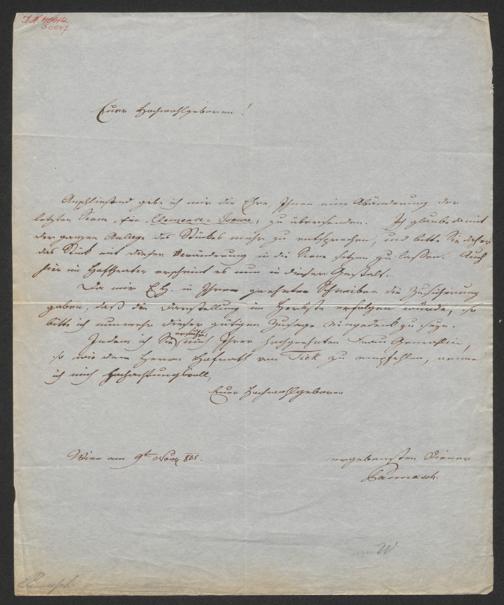 Euer Hochwohlgeboren!
Anschließend gebe ich mir die Ehre Ihnen eine Abänderung der
letzten Scene, für zu übersenden. Ich glaube damit
der ganzen Anlage des Stückes mehr zu entsprechen, und bitte Sie daher
das Stück mit dieser Veränderung in die Scene setzen zu lassen. Auch
hier im Hoftheater erscheint es nun in dieser Gestalt.
Da mir in Ihrem geehrten Schreiben die Zusicherung
gaben, daß die Darstellung im Herbste erfolgen würde, so
bitte ich nunmehro dieser gütigen Zusage eingedenk zu seyn.
Indem ich Sie ersuche mich Ihrer hochgeehrten Frau Gemahlin,
so wie dem Herrn Hofrath von Tiek zu empfehlen, nenne
ich mich hochachtungsvoll,
Euer Hochwohlgeboren
Wien am 9t
ergebensten Diener